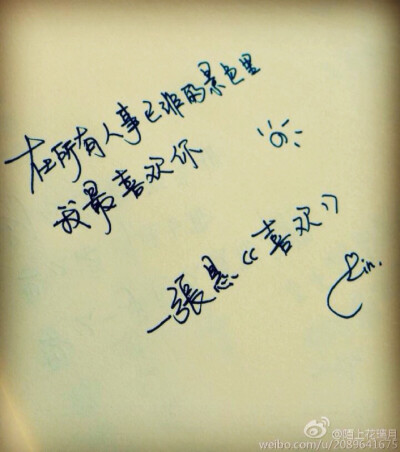 在所有人事已非的景色里
我最喜欢你
—張悬《喜欢》
@陌上花晴月
weibo.com/u/2089641675